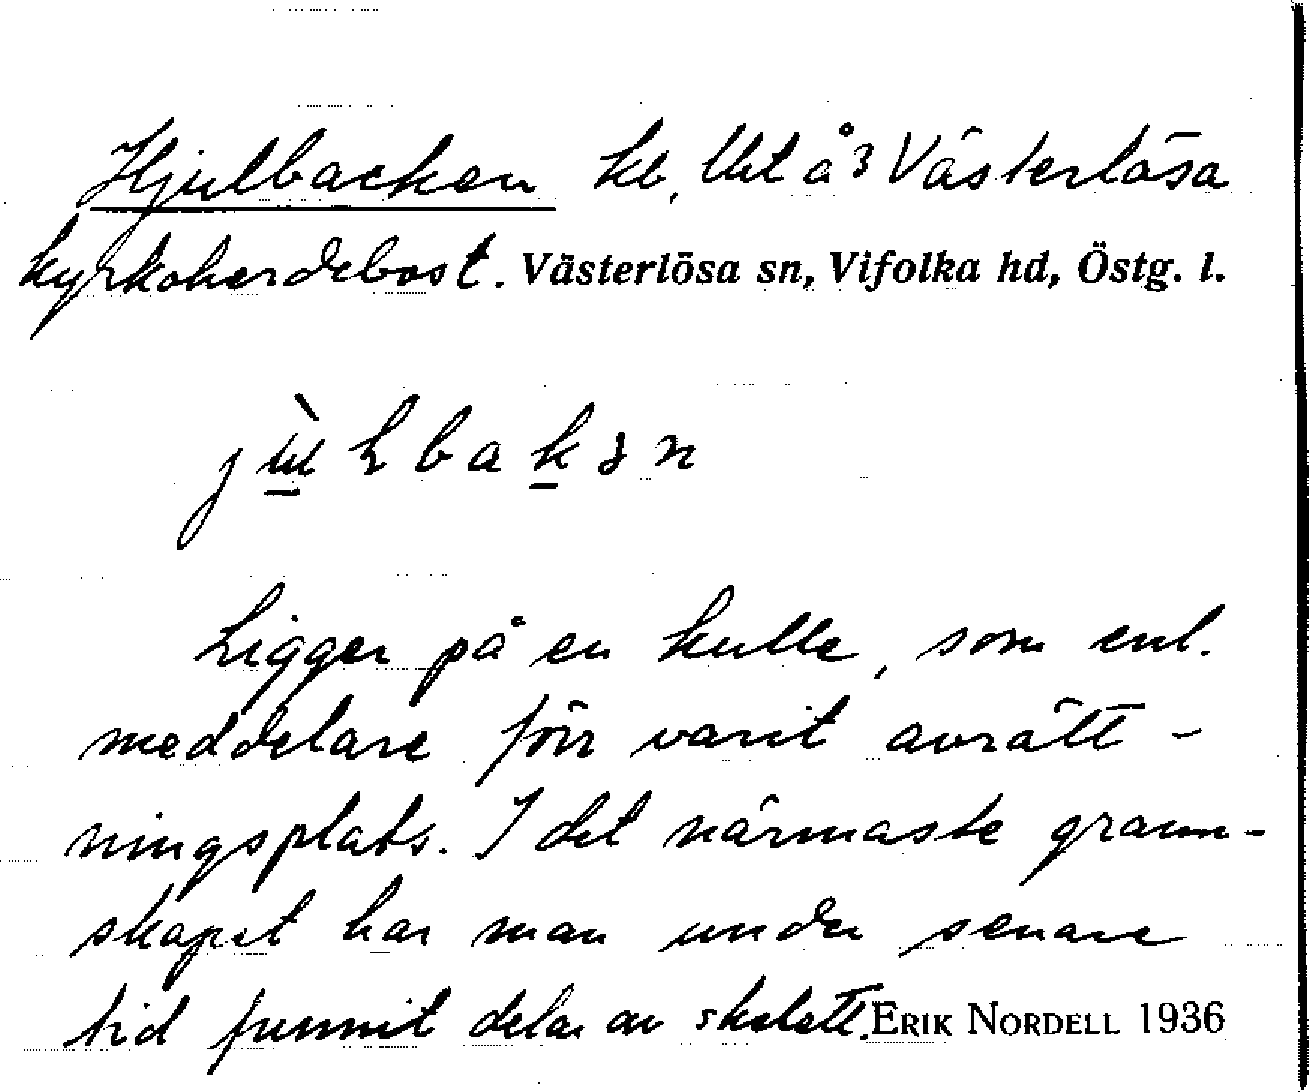 Hjulbacken kb, Ubt å 3 Västerlösa
kyrkoherdebost. Västerlösa sn, Vifolka hd, Östg. l.
Ligger på en kulle, som enl.
meddelare förr varit avrätt-
ningsplats. I det närmaste grann-
skapet har man under senare
tid funnit delar av skelett. ERIK NORDELL 1936